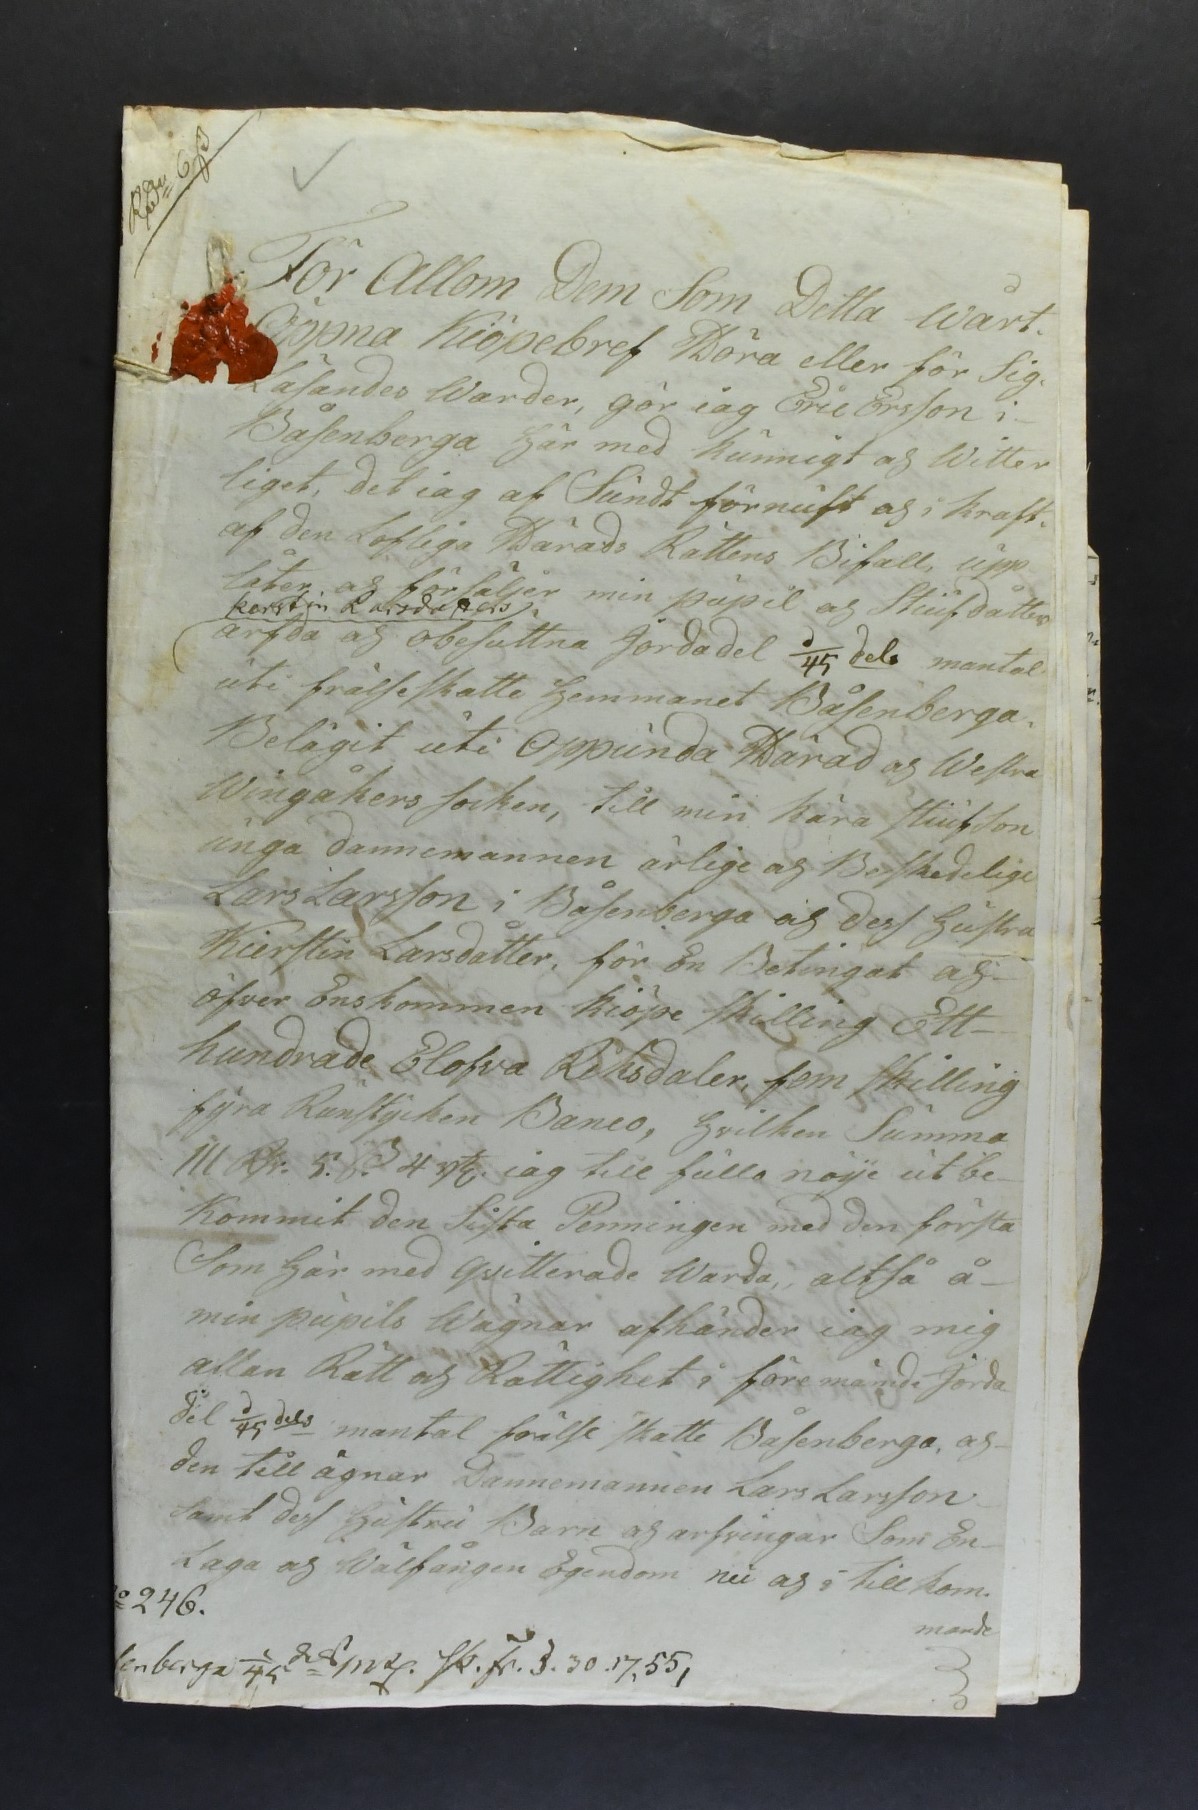 För Allom Dem Som Detta wårt.
Öppna Kiöpebref Höra eller för Sig.
Läsandes Warder, gör iag Eric Ersson i
Båsenberga Här med kunnigt og Witter
liget, det iag af Sundt förnuft og i kraft.
af den Lofliga Härads Rättens Bifall, upp
låter og försäljer min pupil og Stiufdåtter
kerstin Larsdotters
ärfda og obesuttna Jordadel 2/45 dels mantal
uti frälseskatte Hemmanet Båsenberga.
Belägit uti Oppunda Härad og Westra
Wingåkers socken, till min kära stiufson
unga dannemannen ärlige og Beskedelige
Lars Larsson i Båsenberga og dess Hustru
Kierstin Larsdåtter, för En Betingat og
öfver Enskommen kiöpe skilling Ett-
hundrade Elofva Riksdaler, fem skilling
fyra Runstycken Banco, Hvilken Summa
111 Rdr. 5. s. 4 rst. iag till fullo nöije ut be-
kommit den Sista Penningen med den första
Som Här med qvitterade Warda, altså å-
min pupils Wägnar afhänder iag mig
allan Rätt og Rättighet i förenämde Jorda
del 2/45 dels mantal frälse skatte Båsenberga, og
den till ägnar Dannemannen Lars Larsson
samt dess Hustru Barn og arfvingar Som En
Laga og Wälfången Egendom nu og i till kom.
mande
º 246.
senberga 2/45 dels mt. sk. fr. 3. 30. 17,55,